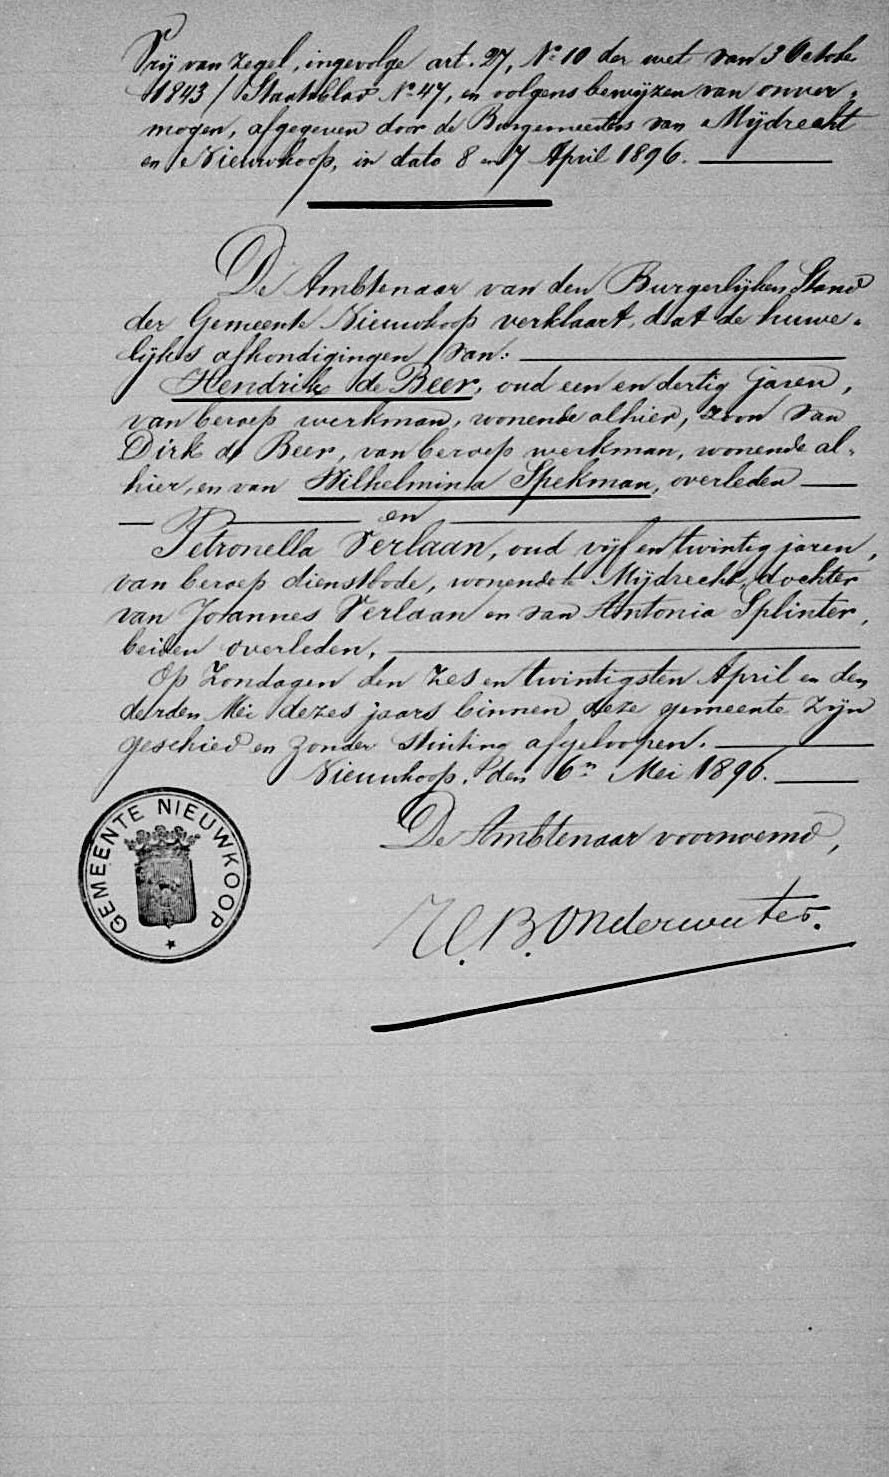 Vrij van zegel, ingevolge art. 27, No. 10 der wet van 3 October
1843 / Staatsblad No. 47, en volgens bewijzen van onver-
mogen, afgegeven door de Burgemeesters van Mijdrecht
en Nieuwkoop, in dato 8 en 7 April 1896.
De Ambtenaar van den Burgerlijken Stand
der Gemeente Nieuwkoop verklaart, dat de huwe-
lijks afkondigingen van:
Hendrik de Beer, oud een en dertig jaren,
van beroep werkman, wonende alhier, zoon van
Dirk de Beer, van beroep werkman, wonende al-
hier, en van Wilhelmina Spekman, overleden
en
Petronella Verlaan, oud vijf en twintig jaren,
van beroep dienstbode, wonende te Mijdrecht, dochter
van Joannes Verlaan en van Antonia Splinter,
beiden overleden,
Op Zondagen den zes en twintigsten April en den
derden Mei dezes jaars binnen deze gemeente zijn
geschied en zonder stuiting afgeloopen.
Nieuwkoop, den 6n Mei 1896.
De Ambtenaar voornoemd,
B. Onderwater.
GEMEENTE NIEUWKOOP